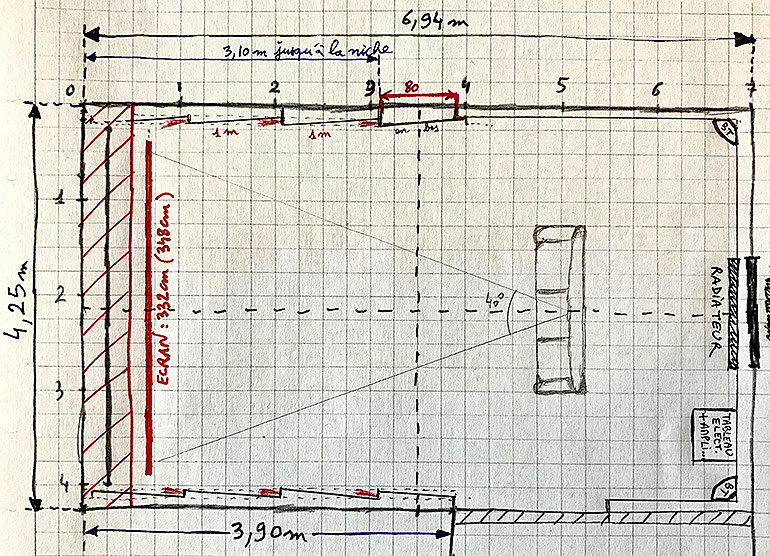 6,94 m
3,10 m jusqu'à la niche
0 1 2 3 4 5 6 7
80
1m 1m en bas
BT
1
2
3
4
4,25 m
ECRAN : 332cm (348cm)
40°
RADIATEUR
TABLEAU
ELECT.
+ AMPLI...
BT
3,90 m